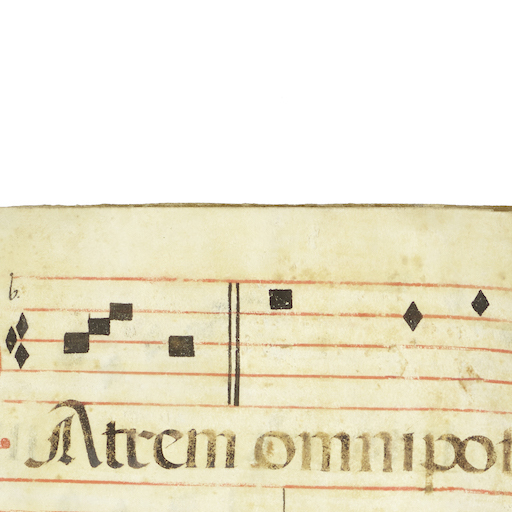 b.
Atrem omnipot